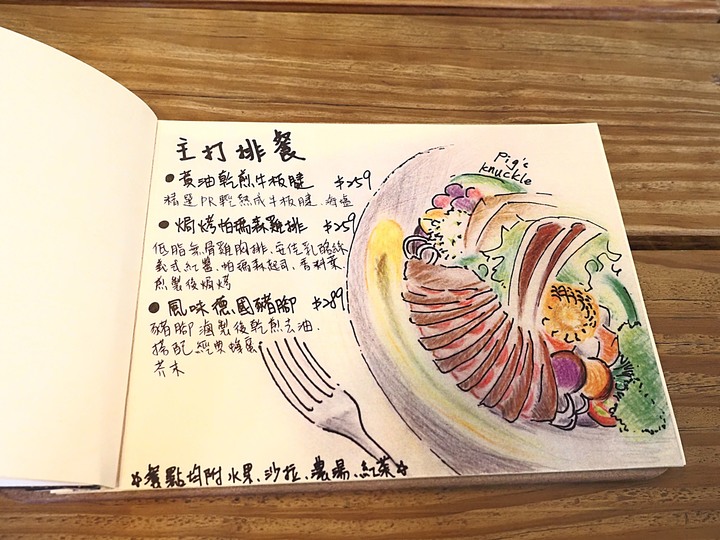 主打排餐
●黃油乾煎牛板腱 $259
精選PR乾熟成牛板腱.海鹽
●焗烤帕瑪森雞排 $259
低脂無骨雞胸排.安佳乳酪絲
義式紅醬.帕瑪森起司.香料菜
煎製後焗烤
●風味德國豬腳 $289
豬腳滷製後乾煎去油.
搭配經典蜂蜜
芥末
Pig's
knuckle
☆餐點均附水果.沙拉.濃湯.紅茶☆